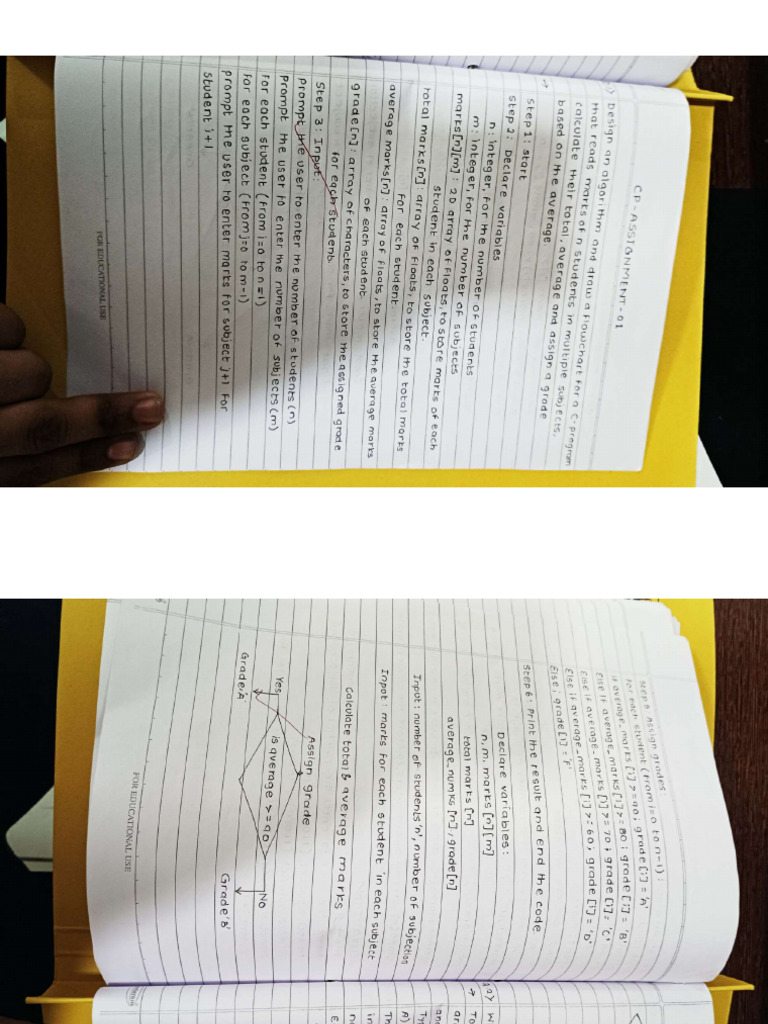 CP-ASSIGNMENT-01
1) Design an algorithm and draw a flowchart for a C-program
that reads marks of n students in multiple subjects,
calculate their total, average and assign a grade
based on the average
→
Step 1: Start
Step 2: Declare variables
n: integer, for the number of students
m: integer, for the number of subjects
marks[n][m]: 2D array of floats, to store marks of each
student in each subject.
total marks[n]: array of floats, to store the total marks
for each student
average marks[n]: array of floats, to store the average marks
of each student
grade[n]: array of characters, to store the assigned grade
for each student.
Step 3: Input:
prompt the user to enter the number of students (n)
Prompt the user to enter the number of subjects (m)
for each student (from i=0 to n-1)
for each subject (from j=0 to m-1)
prompt the user to enter marks for subject j+1 for
student i+1
FOR EDUCATIONAL USE
Assign grades:
for each student (from i=0 to n-1):
if average_marks [i] >= 90; grade [i] = 'A'
Else if average_marks [i] >= 80; grade [i] = 'B'
Else if average_marks [i] >= 70; grade [i] = 'C'
Else if average_marks [i] >= 60; grade [i] = 'D'
Else; grade [i] = 'F'
Step 6: Print the result and end the code
Declare variables:
n, m, marks [n][m]
total marks [n]
average_numks [n], grade[n]
Input: number of students 'n', number of subjection
Input: marks for each student in each subject
Calculate total & average marks
Assign grade
is average >= 90
Yes
No
Grade'A'
Grade'B'
FOR EDUCATIONAL USE